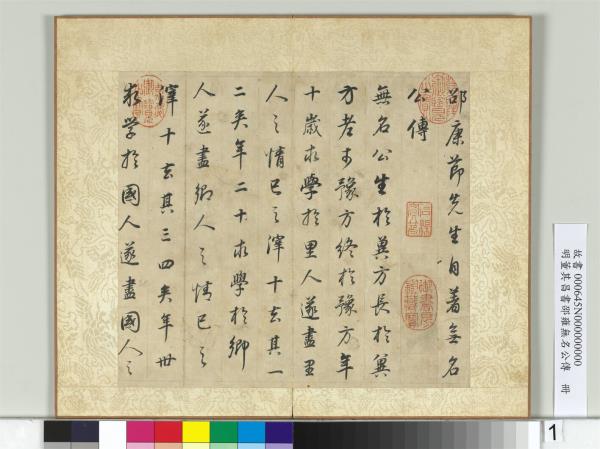 邵康節先生自著無名
公傳
無名公生於冀方長於冀
方老於豫方終於豫方年
十歲求學於里人遂盡里
人之情已之滓十去其一
二矣年二十求學於鄉
人遂盡鄉人之情已之
滓十去其三四矣年卅
求學於國人遂盡國人之
故書000645N000000000
明董其昌書邵雍無名公傳 冊
1